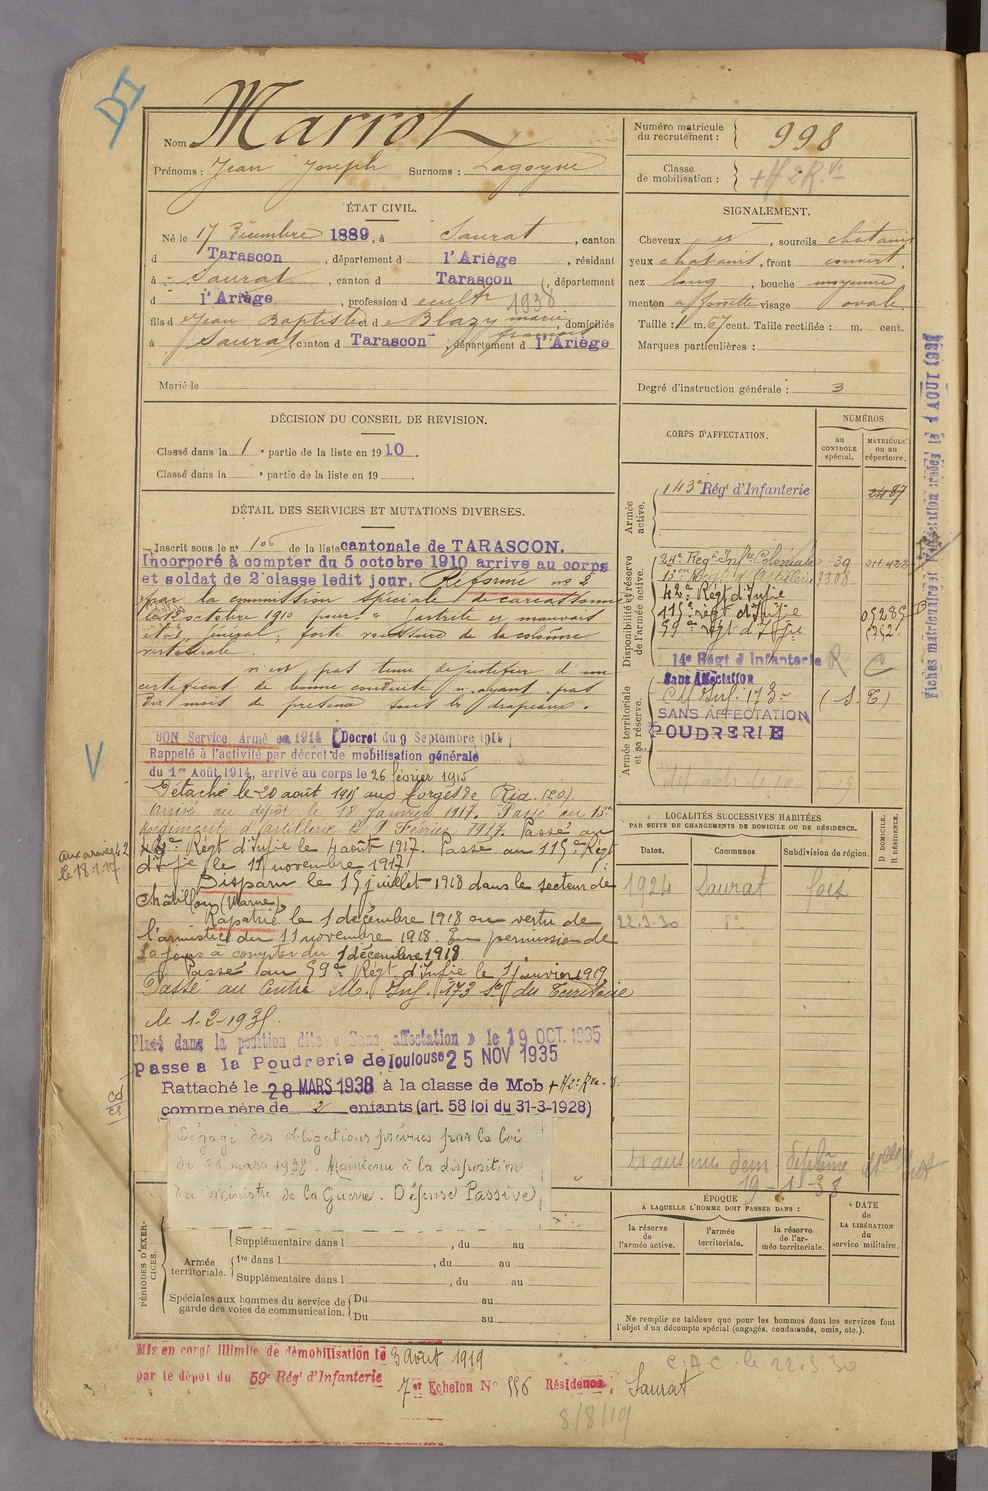 DI
Nom Marrot
Prénoms : Jean Joseph Surnoms : Lagoyne
Numéro matricule du recrutement : 998
Classe de mobilisation : + H 2 R.ve
ÉTAT CIVIL.
Né le 17 Décembre 1889, à Saurat, canton
d Tarascon, département d l'Ariège, résidant
à Saurat, canton d Tarascon, département
d l'Ariège, profession d cultr 1938
fils d Jean Baptiste et d Blazy marie françoise, domiciliés
à Saurat, canton d Tarascon, département d l'Ariège
Marié le
SIGNALEMENT.
Cheveux et, sourcils chatains
yeux chatains, front couvert,
nez long, bouche moyenne
menton a fossette visage ovale
Taille : 1 m. 67 cent. Taille rectifiée : m. cent.
Marques particulières :
Degré d'instruction générale : 3
DÉCISION DU CONSEIL DE REVISION.
Classé dans la 1e partie de la liste en 1910.
Classé dans la e partie de la liste en 19
DÉTAIL DES SERVICES ET MUTATIONS DIVERSES.
Inscrit sous le n° 106 de la liste cantonale de TARASCON.
Incorporé à compter du 5 octobre 1910 arrive au corps
et soldat de 2e classe ledit jour. Réformé no 2
par la commission spéciale de carcassonne
le 12 octobre 1910 pour : " gastrite et mauvais
état général, forte voussure de la colonne
vertébrale.
n'est pas tenu de justifier d'un
certificat de bonne conduite n'ayant pas
dix mois de présence sous les drapeaux.
BON Service Armé en 1914 (Décret du 9 Septembre 1914)
Rappelé à l'activité par décret de mobilisation générale
du 1er Août 1914, arrivé au corps le 26 février 1915
V
Détaché le 20 août 1915 aux forges de Ria. (P.O)
Arrivé au dépôt le 18 janvier 1917. Passé au 15e
Régiment d'artillerie le 1 Février 1917. Passé au
42e Régt d'Infie le 4 août 1917. Passé au 115e Régt
d'Infie le 11 novembre 1917
aux armées 42
le 18.1.17
Disparu le 15 juillet 1918 dans le secteur de
Châtillon (Marne)
Rapatrié le 1 décembre 1918 en vertu de
l'armistice du 11 novembre 1918. En permission de
30 jours à compter du 1 décembre 1918
Passé au 59e Régt d'Infie le 1 janvier 1919
Passé au Centre M. Inf. 173 Son du Territoire
le 1-2-193
Placé dans la position dite « Sans affectation » le 19 OCT. 1935
Passé a la Poudrerie de Toulouse 25 NOV 1935
Rattaché le 28 MARS 1938 à la classe de Mob + H 2e Rve
comme père de 2 enfants (art. 58 loi du 31-3-1928)
Dégagé des obligations prévues par la loi
du 31 mars 1928. Maintenu à la disposition
du Ministre de la Guerre. Défense Passive
CORPS D'AFFECTATION.
NUMÉROS
au CONTROLE spécial.
MATRICULE ou au répertoire.
Armée active.
143e Régt d'Infanterie 2487
Disponibilité et réserve de l'armée active.
24e Regt Infie Coloniale 39 011.422
15em Regt d'Artillerie 3308
42e Régt d'Infie
115e régt d'Infie 05285
59e régt d'Infie
14e Régt d'Infanterie R C
Sans Affectation
Armée territoriale et sa réserve.
CM Inf. 173 (S.T)
SANS AFFECTATION
POUDRERIE
Fiches matriculaire et d'affectation créées le 1 AOUT 1927
LOCALITÉS SUCCESSIVES HABITÉES
PAR SUITE DE CHANGEMENTS DE DOMICILE OU DE RÉSIDENCE.
Dates.
Communes.
Subdivision de région.
D DOMICILE.
R RÉSIDENCE.
1924 Saurat foix
22.3.30 do
19-1-38
ÉPOQUE
A LAQUELLE L'HOMME DOIT PASSER DANS :
la réserve de l'armée active.
l'armée territoriale.
la réserve de l'armée territoriale.
DATE de LA LIBÉRATION du service militaire.
Ne remplir ce tableau que pour les hommes dont les services font
l'objet d'un décompte spécial (engagés, condamnés, omis, etc.).
PÉRIODES D'EXERCICES.
Supplémentaire dans l , du au
Armée territoriale.
1re dans l , du au
Supplémentaire dans l , du au
Spéciales aux hommes du service de garde des voies de communication.
Du au
Du au
Mis en congé illimité de démobilisation le 3 août 1919
par le dépôt du 59e Régt d'Infanterie
7er Echelon No 556 Résidence, Saurat
C.A.C. le 22.3.30
8/8/19